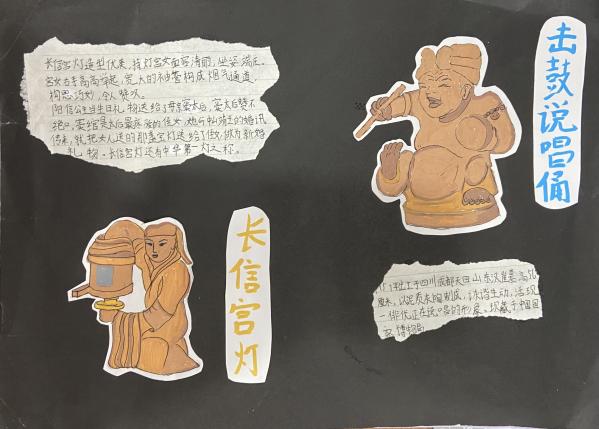 长信宫灯造型优美,持灯宫女面容清丽,坐姿端庄.
宫女右手高高举起,宽大的袖管构成烟气通道,
构思巧妙,令人赞叹.
阳信公主当生日礼物送给了窦太后,窦太后赞不
绝口,窦绾是太后最疼爱的侄女,她
传来,就把女儿送的那盏宫灯送给了侄女,做为新婚
礼物.长信宫灯还有中华第一灯之称.
击鼓说唱俑
长信宫灯
出土于四川成都天回山东汉崖墓,高55
厘米,以泥质灰陶制成,诙谐生动,活现
一俳优正在说唱的形象,现藏于中国国
家博物馆